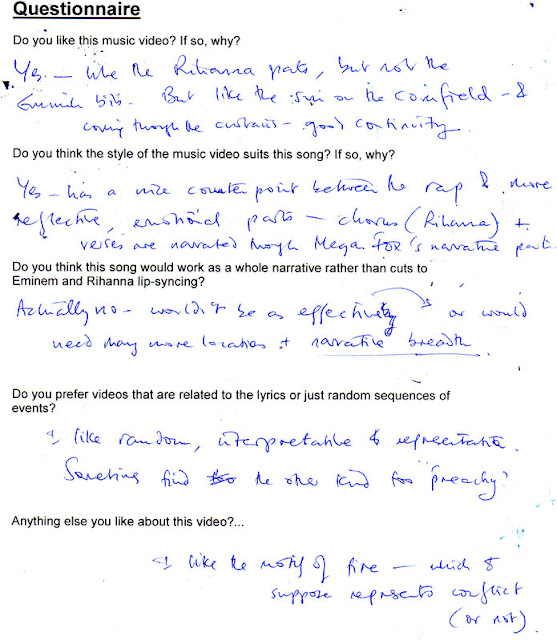 Questionnaire
Do you like this music video? If so, why?
Yes - like the Rihanna parts, but not the
Eminem bits. But like the sun on the cornfield - &
coming through the curtains - good continuity.
Do you think the style of the music video suits this song? If so, why?
Yes - has a nice counterpoint between the rap & more
reflective, emotional parts - chorus (Rihanna) +
verses are narrated through Megan Fox's narrative part.
Do you think this song would work as a whole narrative rather than cuts to
Eminem and Rihanna lip-syncing?
Actually no - wouldn't be as effective or would
need many more locations + narrative breadth.
Do you prefer videos that are related to the lyrics or just random sequences of
events?
I like random, interpretative & representative.
Sometimes find the other kind too 'preachy'?
Anything else you like about this video?...
I like the motif of fire - which I
suppose represents conflict
(or not)